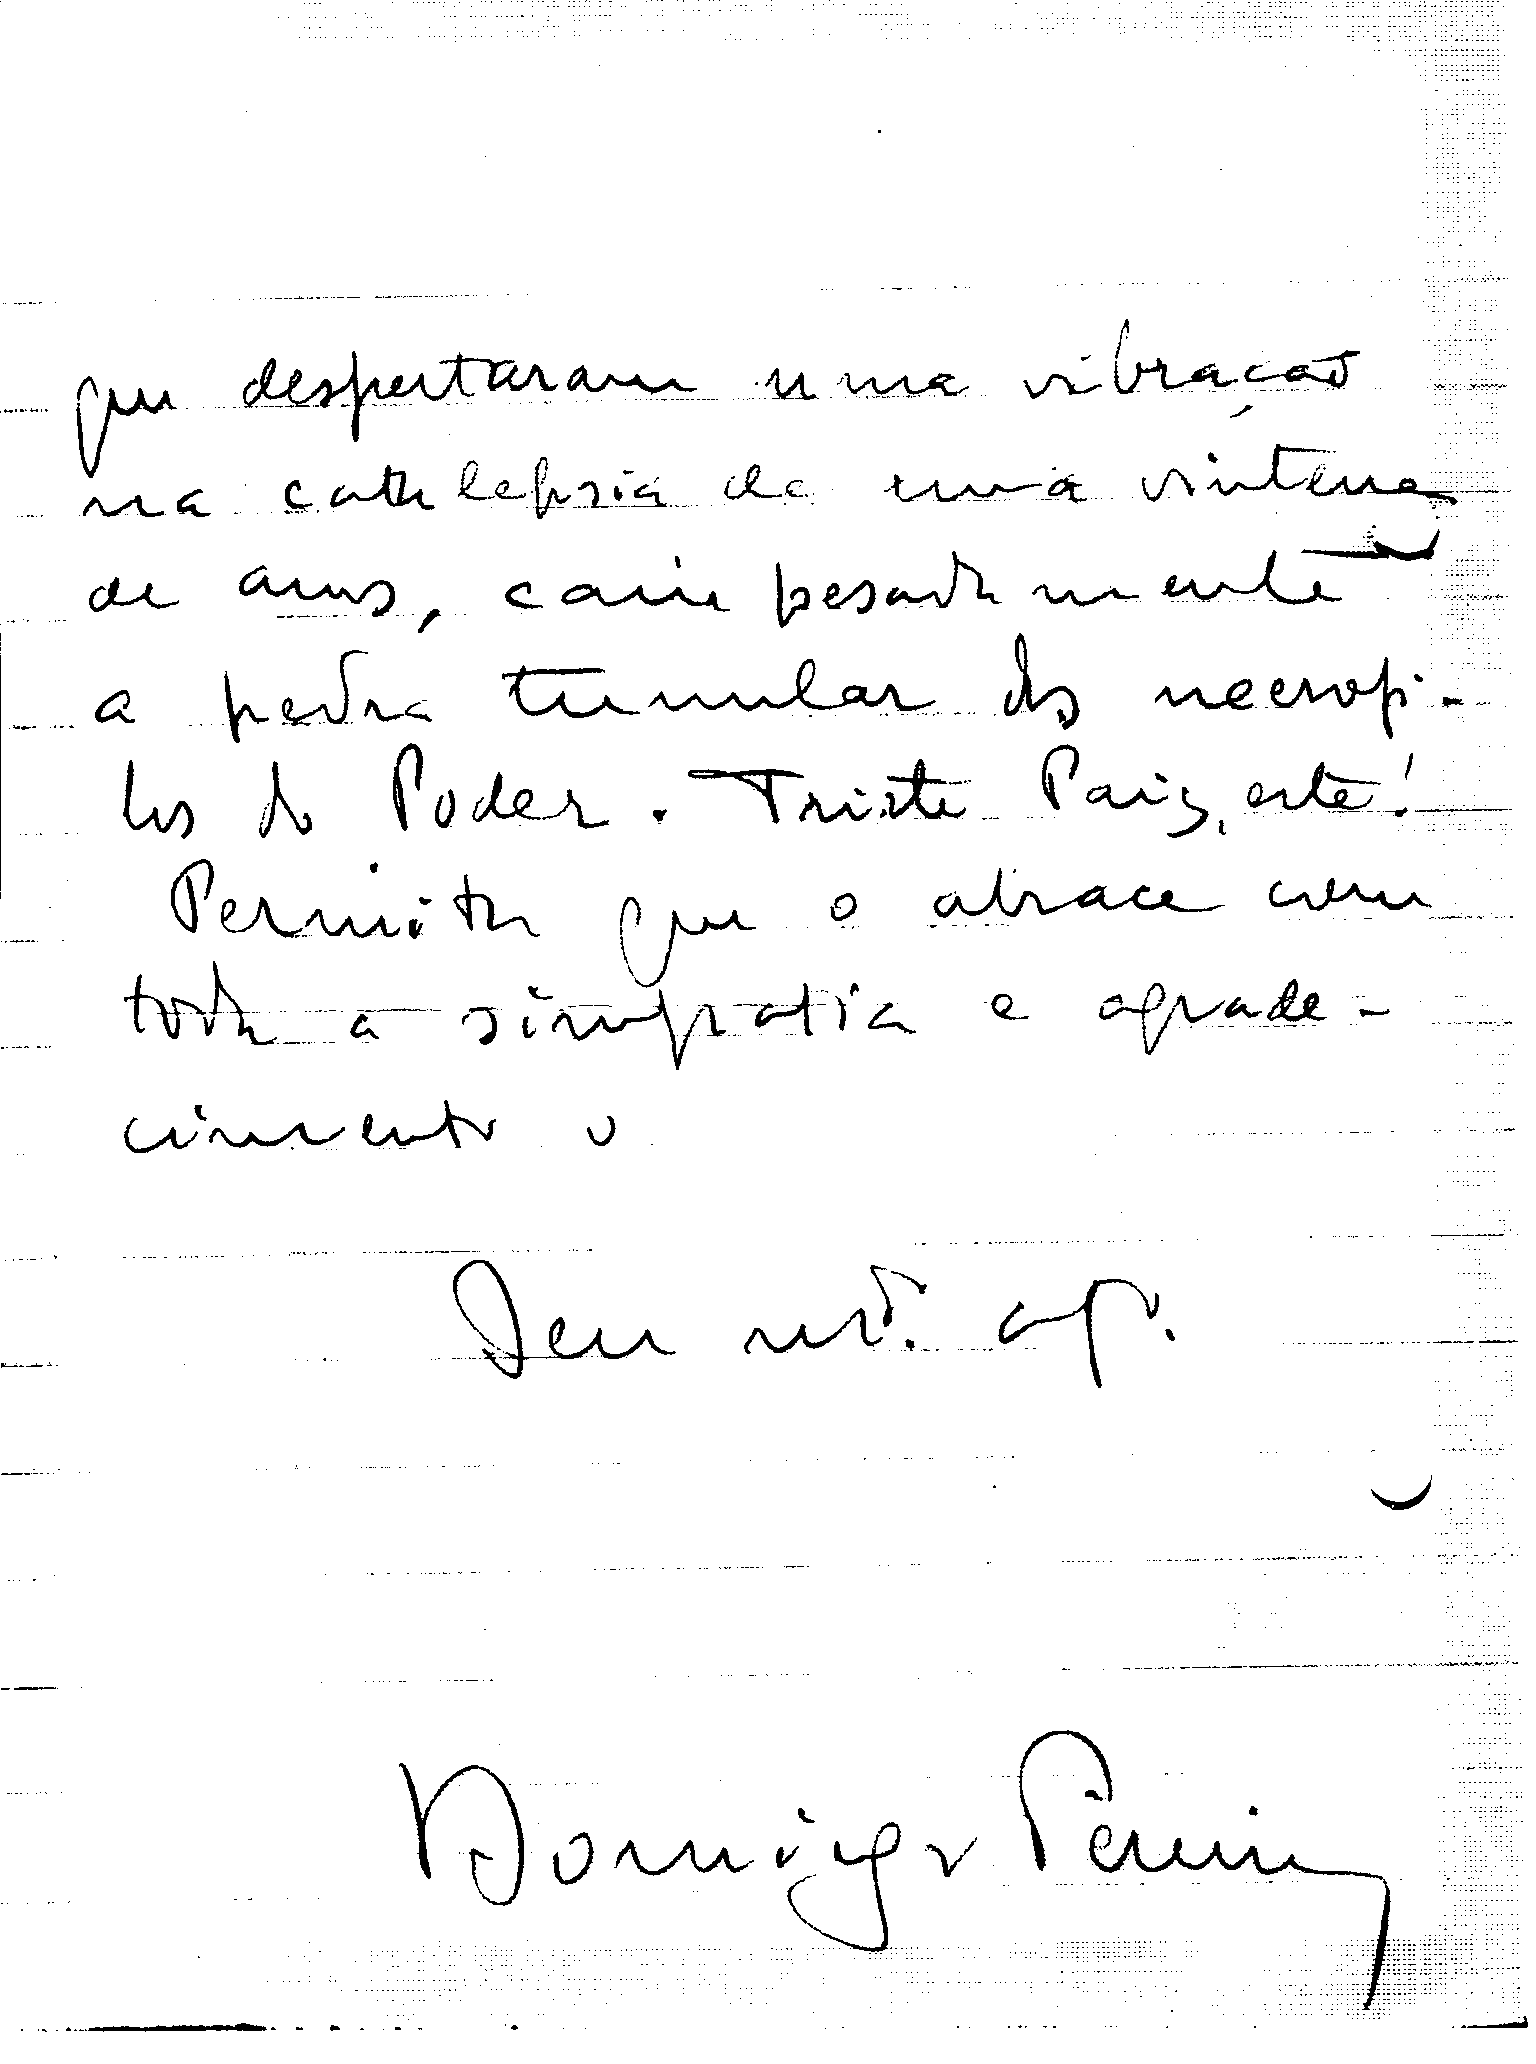 que despertaram uma vibração
na catalepsia de uma vintena
de anos, caiu pesadamente
a pedra tumular dos necropi-
los do Poder. Triste Paiz, este!
Permita que o abrace com
toda a simpatia e agrade-
cimento o
Seu mtº.
Domingos Pereira